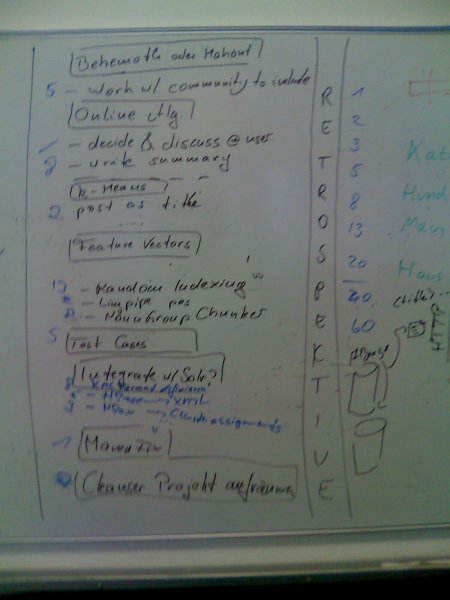 Behemoth oder Mahout
5 - work w/ community to include
Online Alg.
1 - decide & discuss @ user
8 - write summary
k-Means
2 post as title
Feature Vectors
13 - Random Indexing
- Lingpipe pos
8 - NounGroup Chunker
5 Test Cases
Integrate w/ Solr?
8
cluster assignments
1 Maven Fix
Cleanser Projekt aufräumen
RETROSPEKTIVE
1
2
3
5
8
13
20
40
60
Kat
Hund
Maus
Haus
HTTP